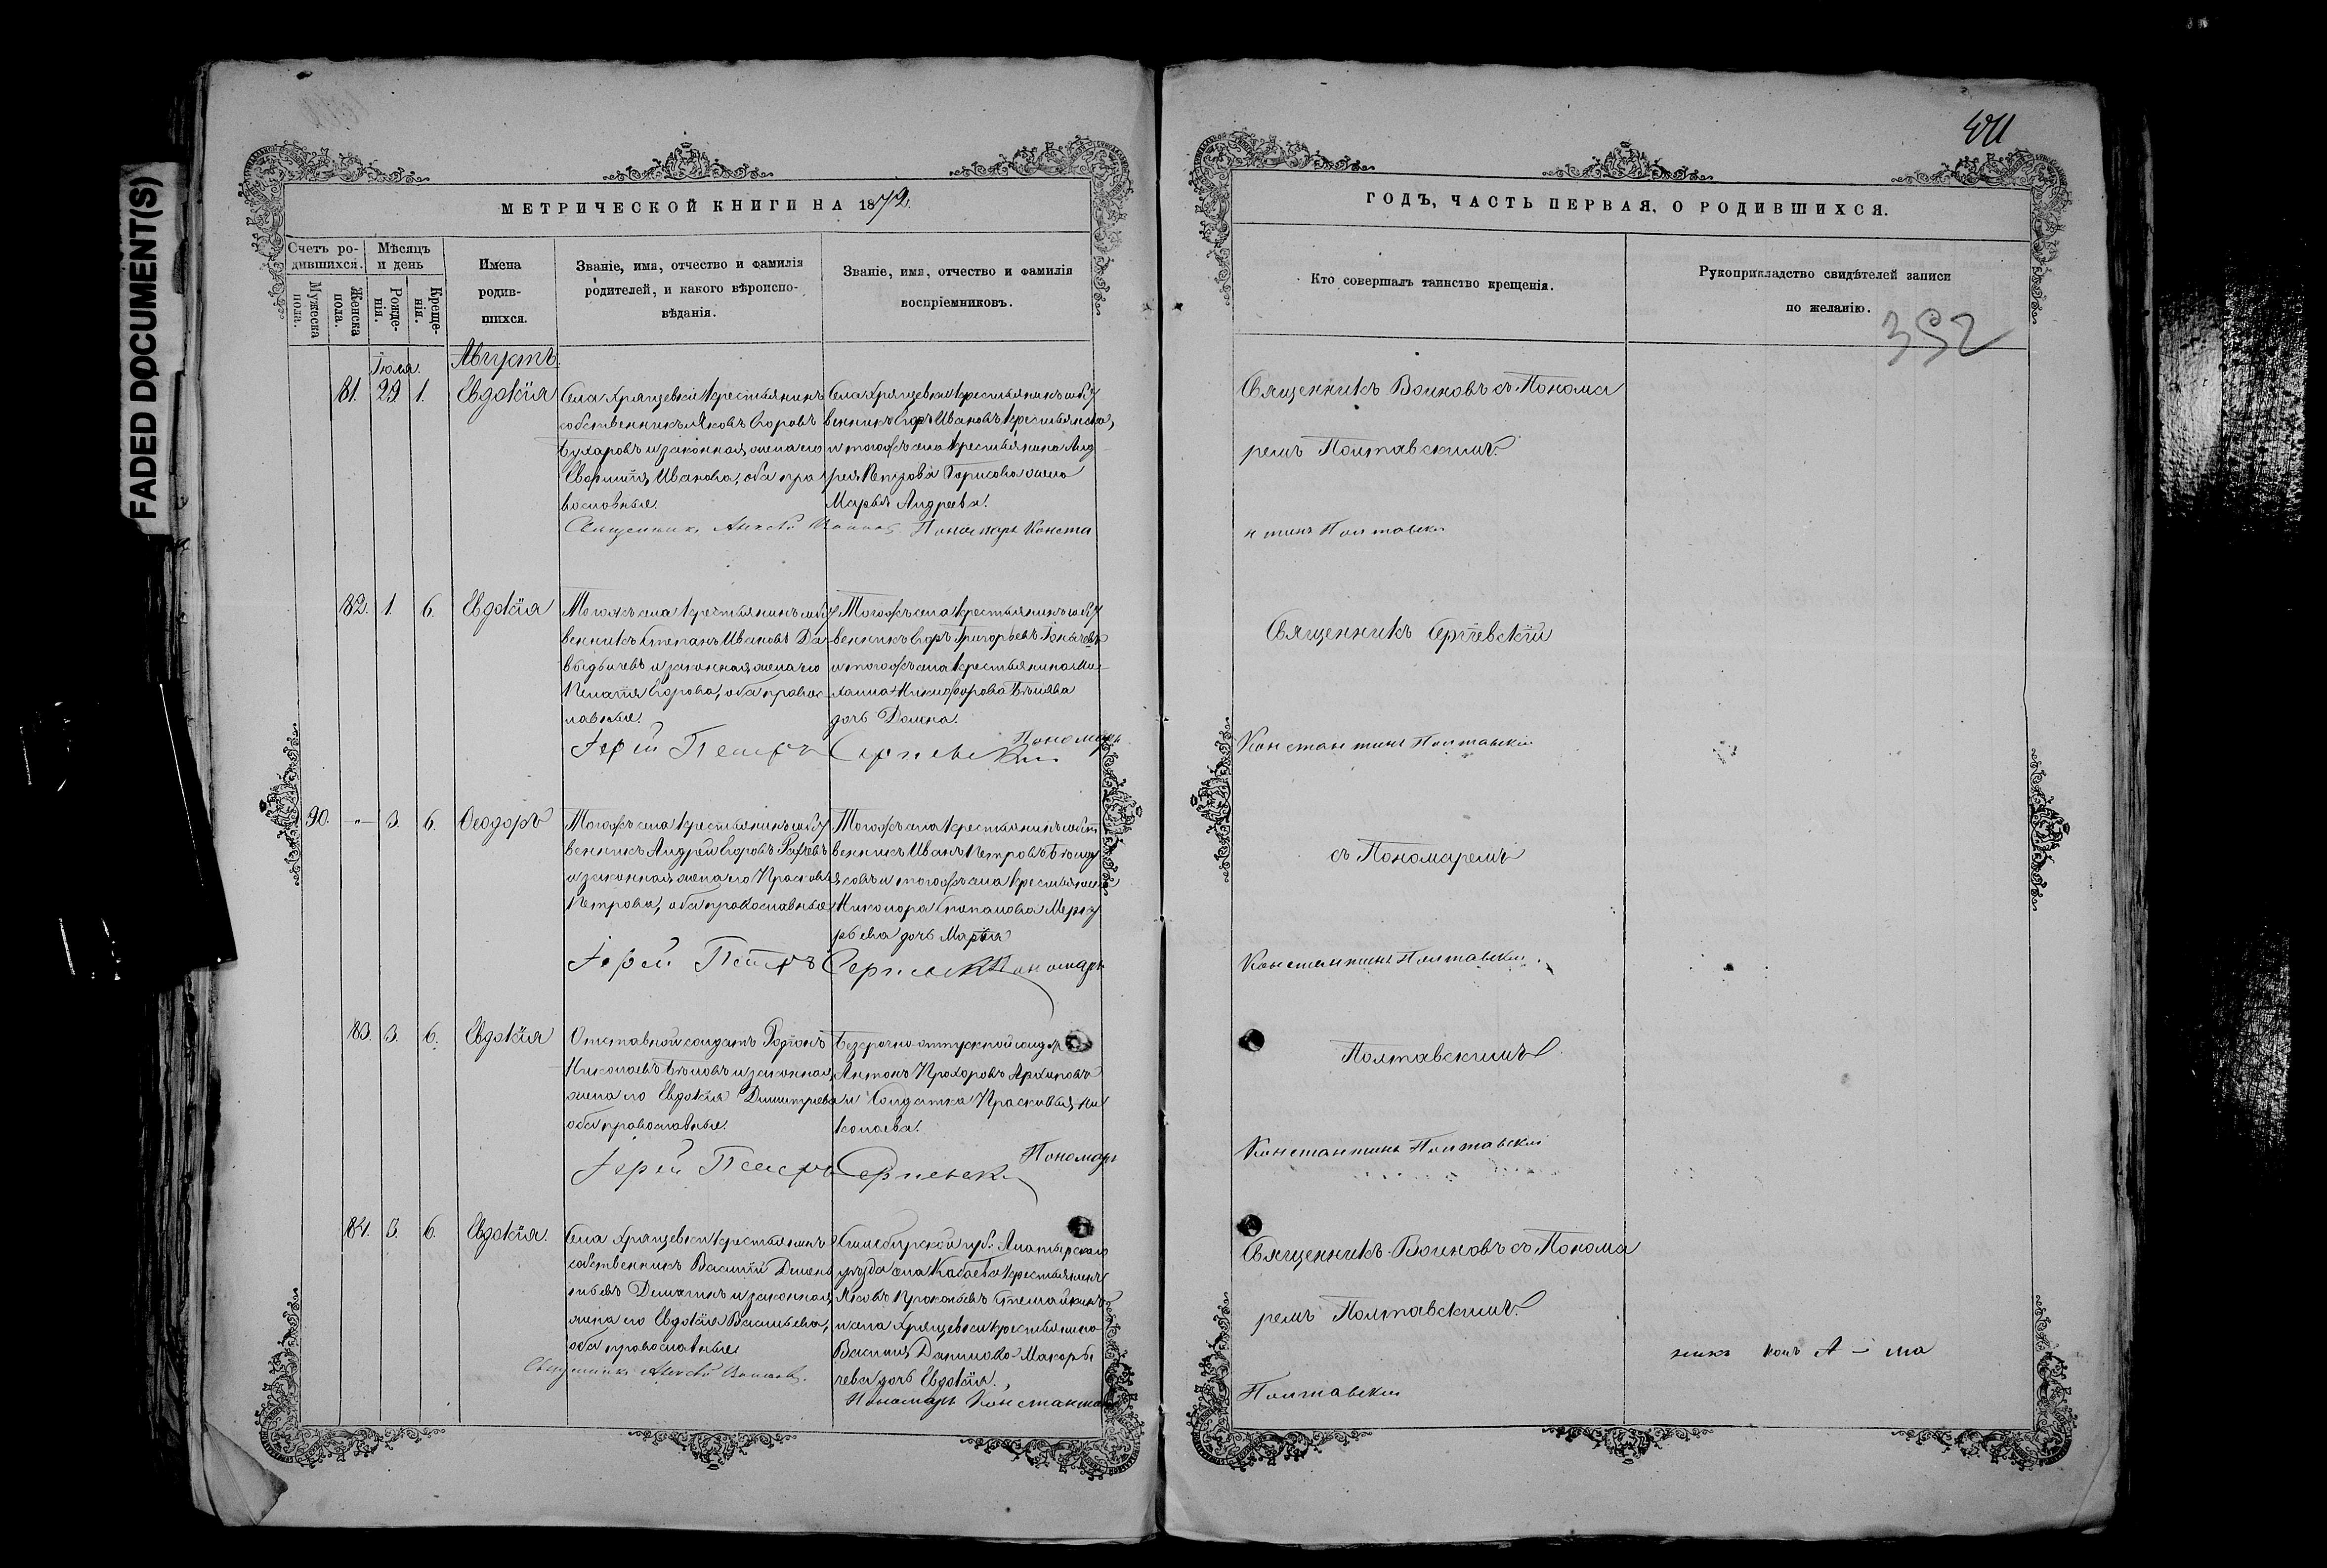 FADED DOCUMENT(S)
МЕТРИЧЕСКОЙ КНИГИ НА 1872
Счетъ ро-
дившихся.
Мужеска
пола.
Женска
пола.
Мѣсяцъ
и день
Рожде-
нія.
Креще-
нія.
Имена
родив-
шихся.
Званіе, имя, отчество и фамилія
родителей, и какого вѣроиспо-
вѣданія.
Званіе, имя, отчество и фамилія
воспріемниковъ.
Іюля. Августъ.
81. 29 1. Евдокія
Села Хрящевки крестьянинъ
собственникъ Яковъ Егоровъ
Бухаровъ и законная жена его
Ивановa, оба пра
вославные.
Священникъ Алексѣй Воиновъ
Села Хрящевки крестьянинъ собст
венникъ Егоръ Ивановъ
и тогожъ села крестьянина Анд
рея Петрова Борисова жена
Марья Андреева.
Пономарь Конста
82. 1. 6. Евдокія
Тогожъ села крестьянинъ собст
венникъ Степанъ Ивановъ Да
выдычевъ и законная жена его
Пелагія Егорова, оба правос
лавные.
Іерей Петръ
Тогожъ села крестьянинъ собст
венникъ Егоръ Григорьевъ
и тогожъ села крестьянина Ми-
хаила Никифорова Бѣляева
дочь Домна.
Пономарь
Сергіевскій
90. -"- 3. 6. Ѳеодоръ
Тогожъ села крестьянинъ собст
венникъ Андрей Егоровъ
и законная жена его Прасковья
Петрова, оба православные
Іерей Петръ
Тогожъ села крестьянинъ собст
венникъ Иванъ Петровъ
и тогожъ села крестьянина
Никонора Степанова Мерку
рьева дочь Марѳа
Сергіевскій Пономарь
83. 3. 6. Евдокія
Отставной солдатъ Родіонъ
Николаевъ Бѣловъ и законная
жена его Евдокія Димитріева
оба православные.
Іерей Петръ
Безсрочно-отпускной солдатъ
Антонъ Прохоровъ Архиповъ
и солдатка Прасковья Ни
колаева.
Пономарь
Сергіевскій
84. 3. 6. Евдокія.
Села Хрящевки крестьянинъ
собственникъ Василій Демен
тьевъ и законная
жена его Евдокія Васильева,
оба православные
Священникъ Алексѣй Воиновъ.
Симбирской губ: Алатырскаго
уѣзда села Кабаева крестьянинъ
Яковъ Прокопьевъ
и села Хрящевки крестьянина
Василія Данилова Макары
чева дочь Евдокія.
Пономарь Константинъ
ГОДЪ, ЧАСТЬ ПЕРВАЯ, О РОДИВШИХСЯ.
Кто совершалъ таинство крещенія.
Рукоприкладство свидѣтелей записи
по желанію.
392
Священникъ Воиновъ съ Понома
ремъ Полтавскимъ.
нтинъ Полтавскій
Священникъ Сергіевскій
Константинъ Полтавскій
съ Пономаремъ
Константинъ Полтавскій
Полтавскимъ.
Константинъ Полтавскій
Священникъ Воиновъ съ Понома
ремъ Полтавскимъ.
Полтавскій